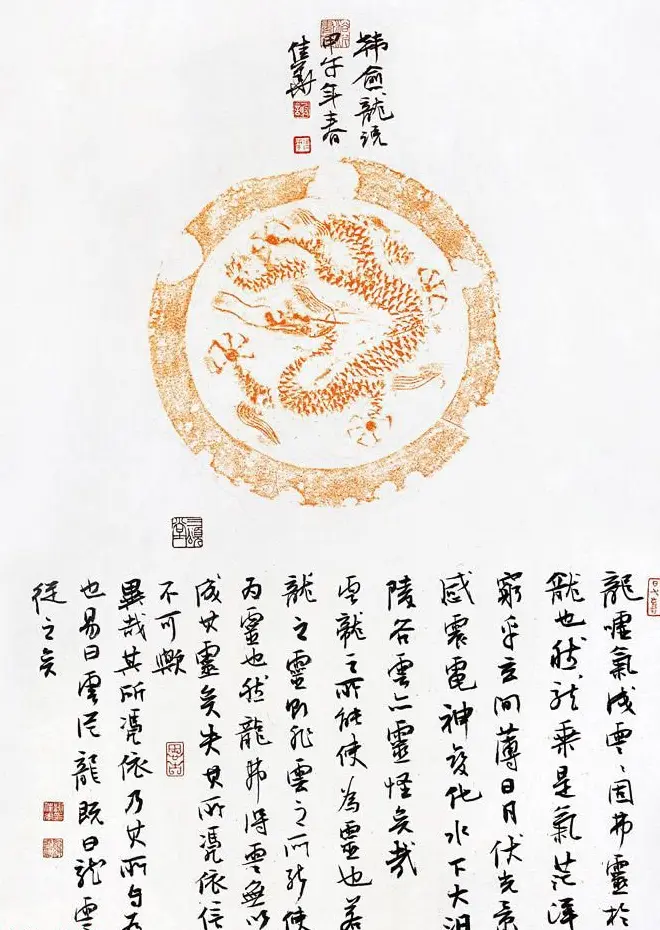 韩愈龍説
甲午年春
龍嘘氣成雲〻固弗靈於
龍也然龍乘是氣茫洋
窮乎玄间薄日月伏光景
感震電神變化水下大汩
陵谷雲亦靈怪矣哉
雲龍之所能使為靈也若
龍之靈則非雲之所能使
为靈也然龍弗得雲無以
成其靈矣失其所憑依信
不可歟
異哉其所憑依乃其所自为
也易曰雲從龍既曰龍雲
從之矣